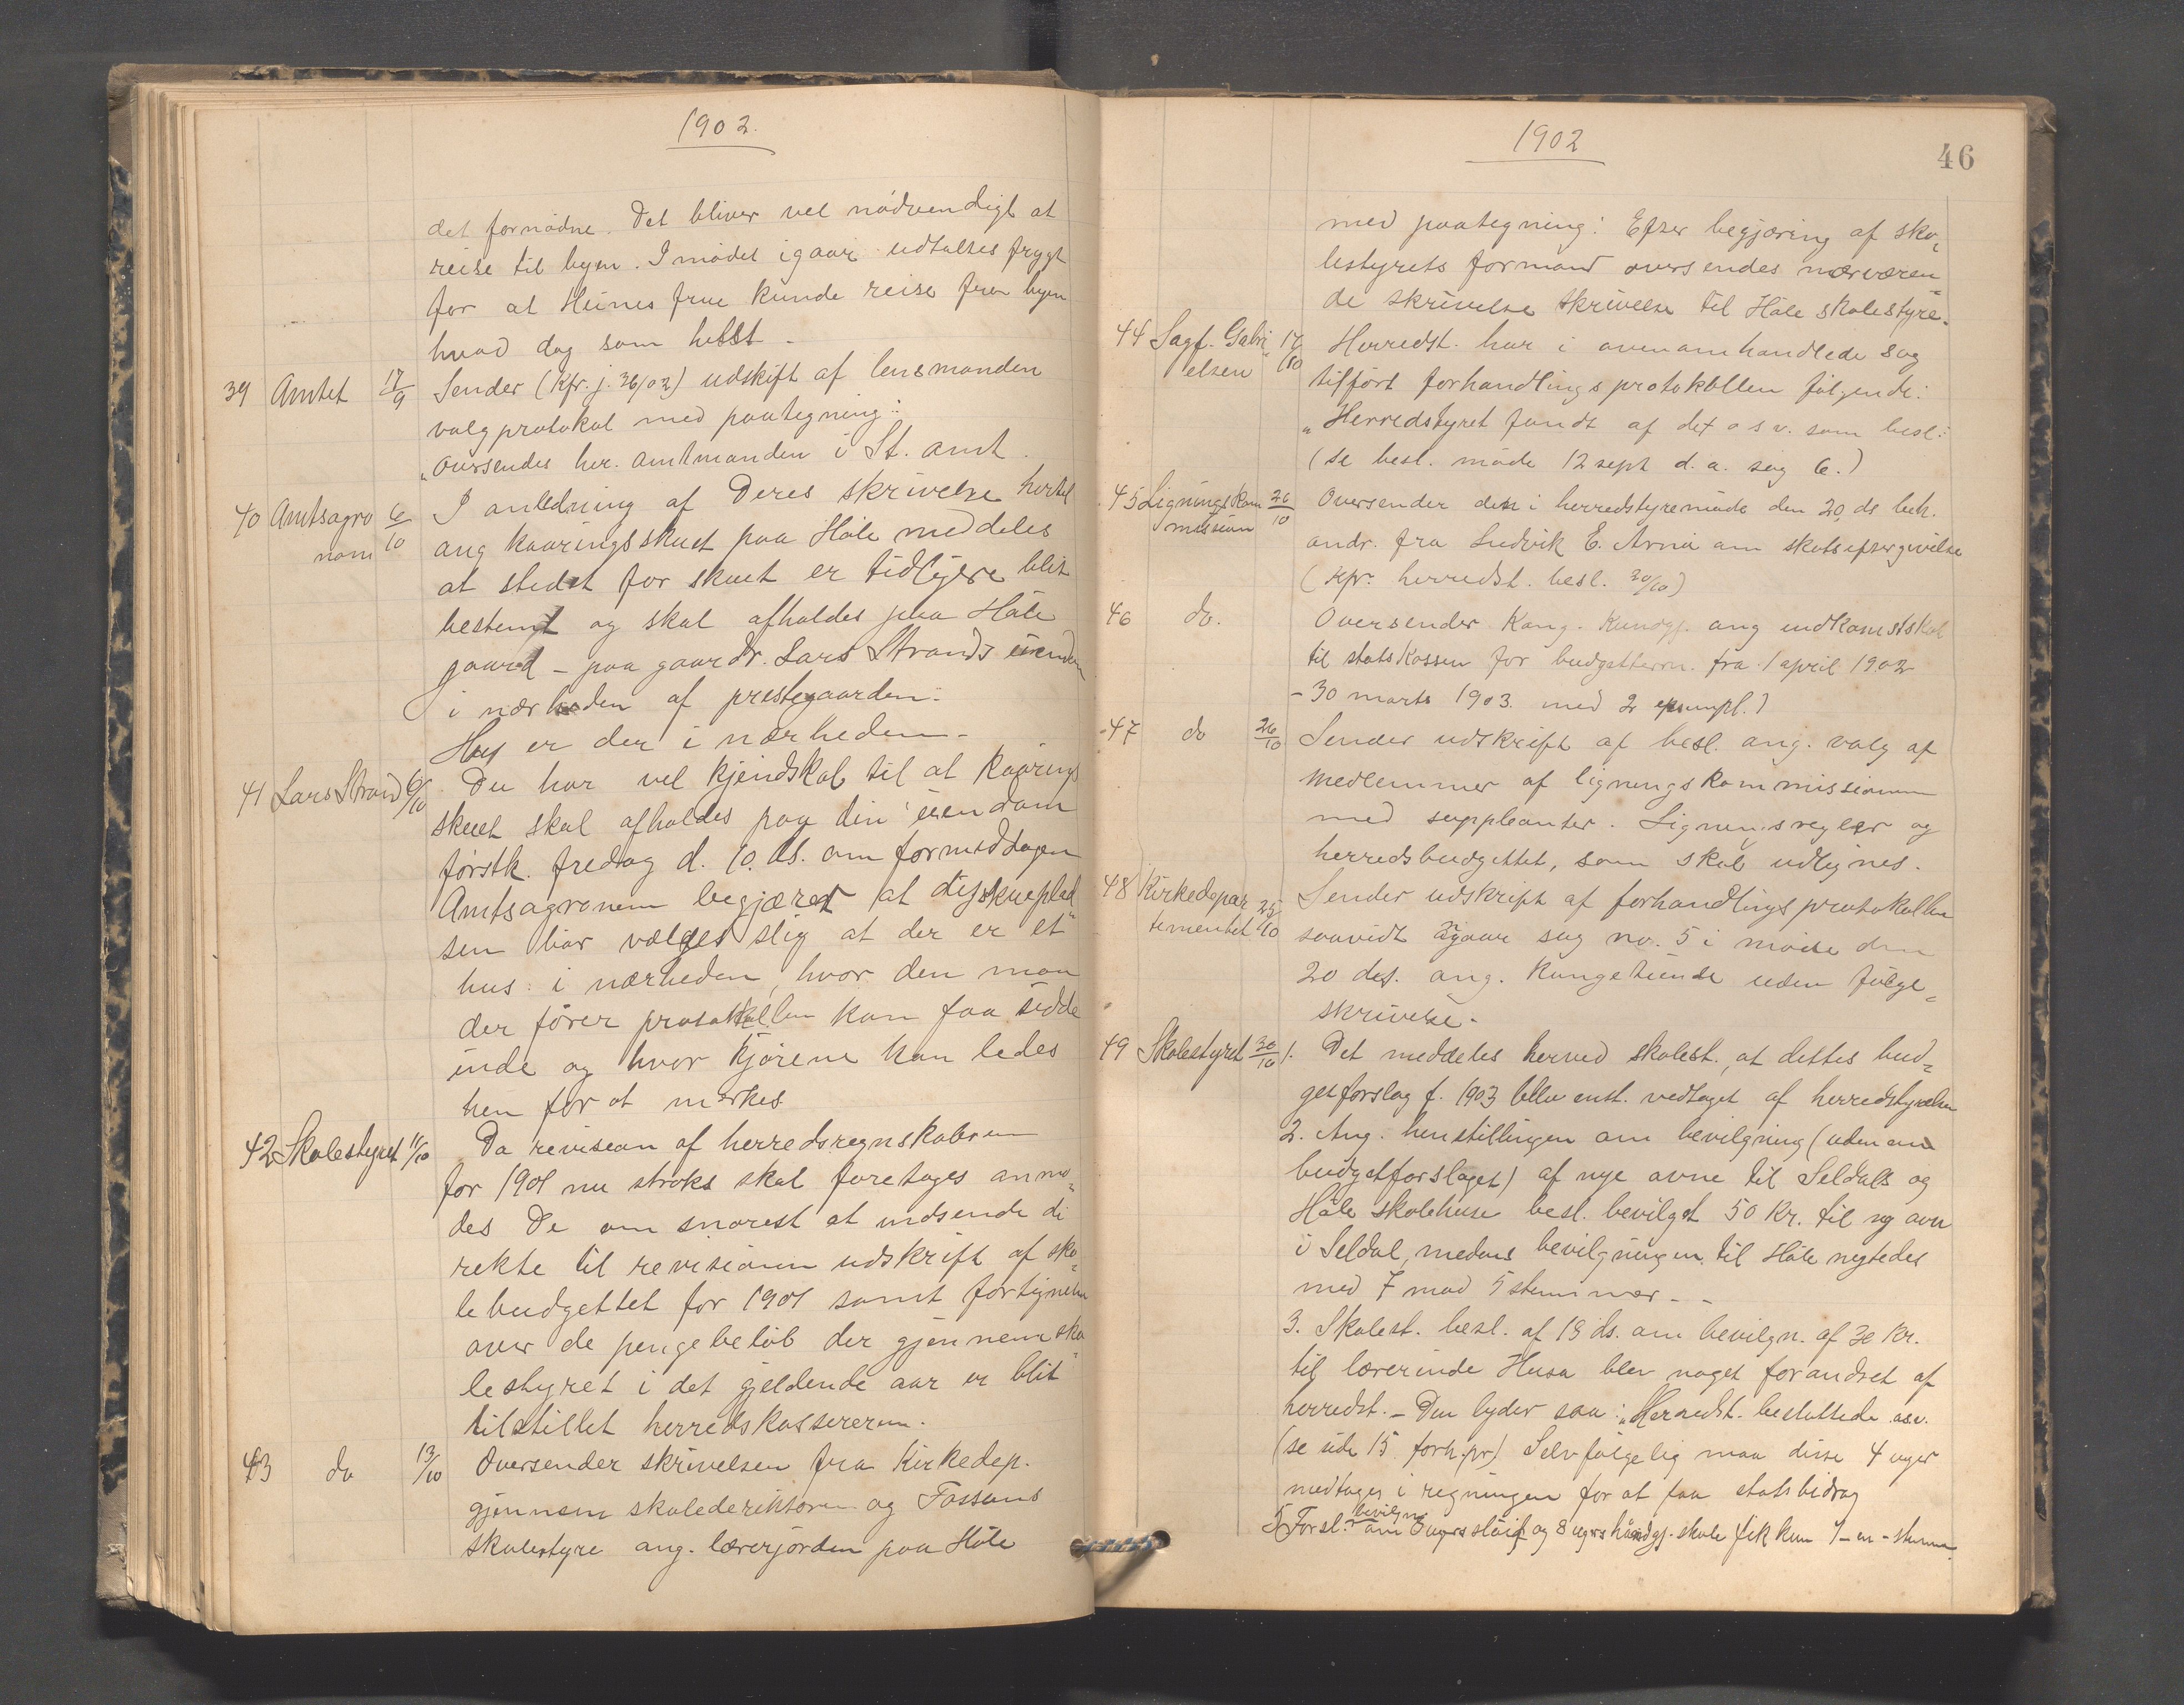 1902.
det fornødne. Det bliver vel nødvendigt at
reise til byen. I mødet igaar udtaltes frygt
for at Heines frue kunde reise fra byen
hvad dag som helst.
39 Amtet 17/9 Sender (Kfr. j. 36/02) udskift af lensmanden
valgprotokol med paategning:
"Oversendes hr. amtmanden i St. amt.
40 Amtsagro 6/10 I anledning af Deres skrivelse hertil
nom ang kaaringsskuet paa Høle meddeles
at stedet for skuet er tidligere blit
bestemt og skal afholdes paa Høle
gaard – paa gaardr. Lars Strands eiendom
i nærheden af prestegaarden.
Hus er der i nærheden.
41 Lars Strand 6/10 Du har vel kjendskab til at kaarings
skuet skal afholdes paa din eiendom
førstk. fredag d. 10. ds. om formiddagen
Amtsagronom begjæret at dyrskueplad
sen bør vælges slig at der er et
hus i nærheden, hvor den man
der fører protokollen kan faa sidde
inde og hvor kjørene kan ledes
hen for at mærkes.
42 Skolestyret 11/10 Da revision af herredsregnskaberne
for 1901 nu straks skal foretages anmo
des De om snarest at indsende di
rekte til revisionen udskrift af sko
lebudgettet for 1901 samt fortegnelse
over de pengebeløb der gjennem sko
lestyret i det gjeldende aar er blit
tilstillet herredskassereren.
43 do 13/10 Oversender skrivelsen fra Kirkedep.
gjennem skolederiktøren og Fossans
skolestyre ang. lærerjorden paa Høle
1902
46
med paategning: Efter begjæring af sko
lestyrets formand oversendes nærværen
de skrivelse skrivelse til Høle skolestyre.
44 Sagf. Gabri 17/10 Herredst. har i ovenomhandlede sag
elsen tilført forhandlingsprotokollen følgende:
"Herredstyret fandt af det o s v. som besl:
(se besl. møde 12 sept d. a. sag 6.)
45 Ligningskom 26/10 Oversender den i herredstyremøde den 20 ds beh.
mission andr. fra Ludvik E. Arnø om skatsefterg ivelse
(Kfr. herredst. besl. 20/10)
46 do. Oversender Kong. Kundgj. ang indkomstskat
til statskassen for budgetterm. fra 1 april 1902
– 30 marts 1903. med 2 exempl.)
47 do 26/10 Sender udskrift af besl. ang. valg af
medlemmer af ligningskommissionen
med suppleanter. Ligningsregler og
herredsbudgettet, som skal udlignes.
48 Kirkedepar 25/10 Sender udskrift af forhandlingsprotokollen
tementet saavidt angaar sag no. 5 i møde den
20 ds. ang. Kongetiende uden følge
skrivelse.
49 Skolestyret 30/10 1. Det meddeles herved skolest., at dettes bud
getforslag f. 1903 blev enst. vedtaget af herredstyrelsen
2. Ang. henstillingen om bevilgning (uden om
budgetforslaget) af nye ovne til Seldals og
Høle skolehuse besl. bevilget 50 Kr. til ny ovn
i Seldal, medens bevilgningen til Høle nytedes
med 7 mod 5 stemmer.
3. Skolest. besl. af 19 ds. om bevilgn. af 30 Kr.
til lærerinde Husa blev noget forandret af
herredst. – Den lyder saa: "Herredst. besluttede osv.
(se side 15 forh.pr) Selvfølgelig maa disse 4 uger
medtages i regningen for at faa statsbidrag
5 Forsl. bevilgn. om 6 ugers sløif og 8 ugers håndgj. skole fik kun 1 – en – stemme.